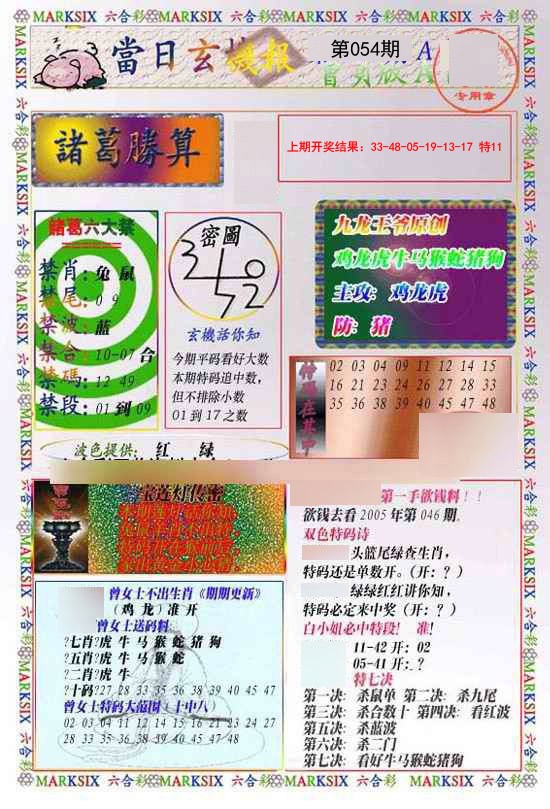 MARKSIX 六合彩 MARKSIX 六合彩 MARKSIX 六合彩 MARKSIX 六合彩
當日玄機报
第054期
A
专用章
諸葛勝算
上期开奖结果: 33-48-05-19-13-17 特11
諸葛六大禁
禁肖: 兔 鼠
禁尾: 0 9
禁波: 蓝
禁合: 10-07 合
禁碼: 12 49
禁段: 01 到 09
密圖
玄機話你知
今期平码看好大数
本期特码追中数,
但不排除小数
01 到 17 之数
九龙王爷原创
鸡龙虎牛马猴蛇猪狗
主攻: 鸡龙虎
防: 猪
02 03 04 09 11 12 14 15
16 21 23 24 26 27 28 33
35 36 38 39 40 45 47 48
波色提供: 红 绿
宝莲灯传密
第一手欲钱料!!
欲钱去看 2005 年第 046 期.
双色特码诗
头篮尾绿查生肖,
特码还是单数开。(开: ?)
绿绿红红讲你知,
特码必定来中奖(开: ?)
白小姐必中特段! 准!
11-42 开: 02
05-41 开: ?
特七决
第一决: 杀鼠单 第二决: 杀九尾
第三决: 杀合数十 第四决: 看红波
第五决: 杀蓝波
第六决: 杀二门
第七决: 看好牛马猴蛇猪狗
曾女士不出生肖《期期更新》
(鸡 龙)准 开
曾女士送码料:
?七肖?虎 牛 马 猴 蛇 猪 狗
?五肖?虎 牛 马 猴 蛇
?二肖?虎 牛
?十码?27 28 33 35 36 38 39 40 45 47
曾女士特码大范围(十中八)
02 03 04 11 12 14 15 16 21 23 24 27
28 33 35 36 38 39 40 45 47 48
MARKSIX 六合彩 MARKSIX 六合彩 MARKSIX 六合彩 MARKSIX 六合彩